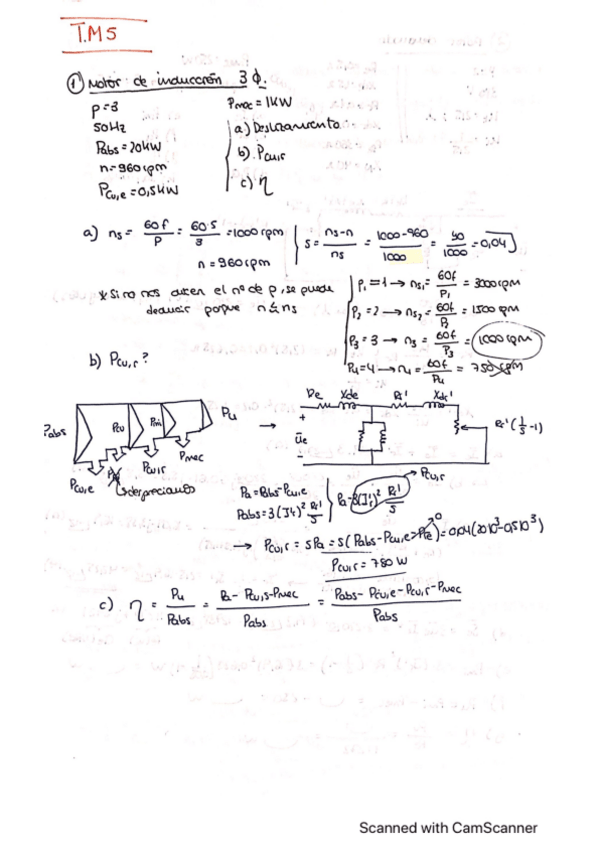 T.M5
1) Motor de inducción 3Φ.
p=3
50Hz
Pabs = 20kW
n=960rpm
Pcu,e = 0,5kW
Pmec = 1kW
a) Deslizamiento
b) Pcu,r
c) η
a) ns = 60f/p = 60·5/3 = 1000rpm
s = ns-n/ns = 1000-960/1000 = 40/1000 = 0,04
n = 960rpm
* Si no nos dicen el nº de p, se puede
deducir porque n≈ns
P1 = 1 → ns1 = 60f/P1 = 3000rpm
P2 = 2 → ns2 = 60f/P2 = 1500 rpm
P3 = 3 → ns = 60f/P3 = 1000 rpm
P4 = 4 → n = 60f/P4 = 750 rpm
b) Pcu,r?
Pabs
Pu
Pmec
Pcu,r
Pcu,e
despreciamos
→
Xde
Rr'
Xdr'
Ue
Rr'(1/s -1)
Pcu,r
Pa = Pabs - Pcu,e
→ Pcu,r = sPa = s(Pabs - Pcu,e - Pfe) = 0,04(20·10³ - 0,5·10³)
0
Pcu,r = 780 W
c) η = Pu/Pabs
= Pabs - Pcu,e - Pcu,r - Pmec/Pabs
Scanned with CamScanner